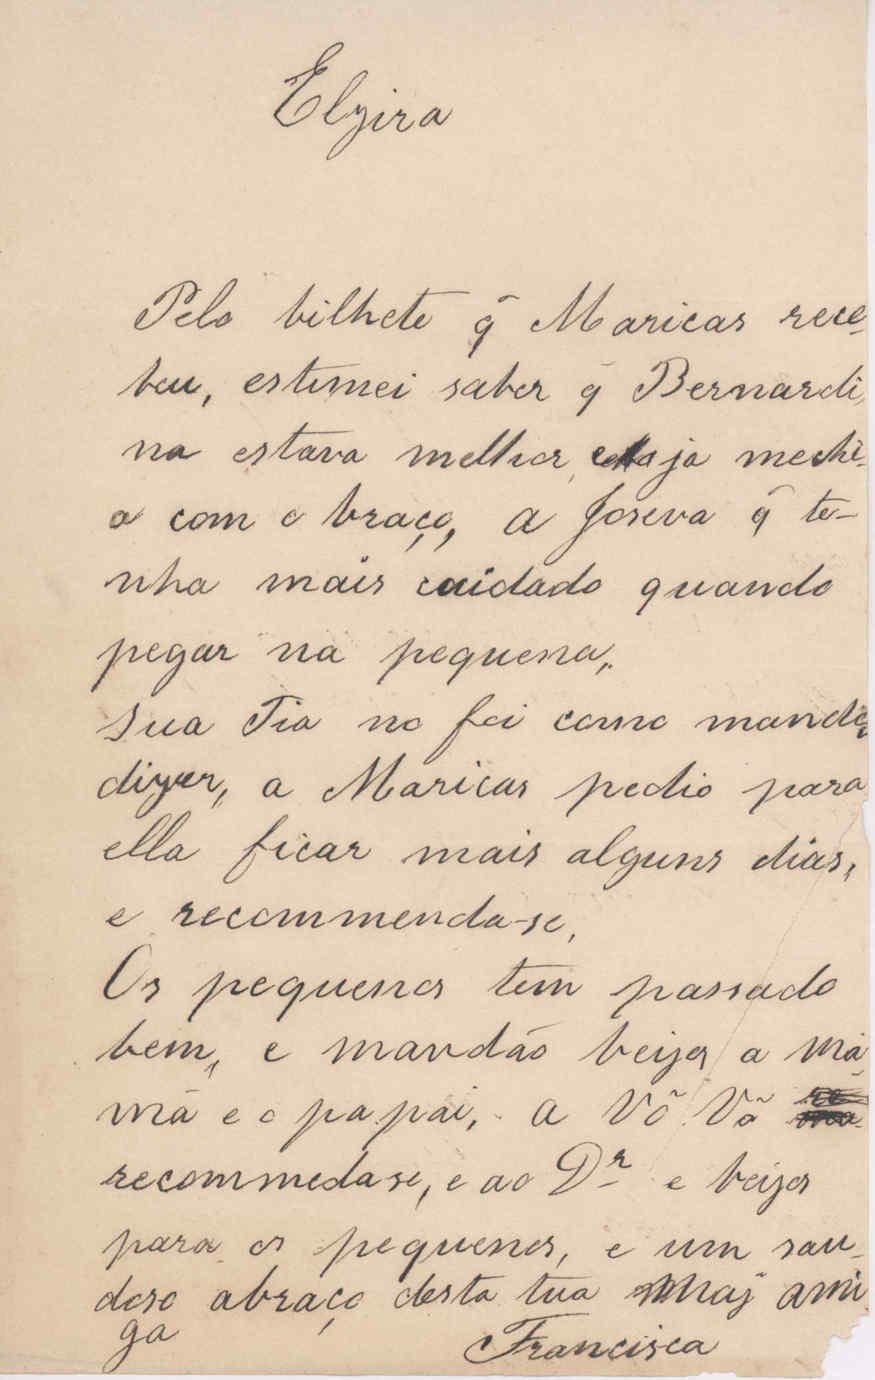 Elzira
Pelo bilhete q̃ Maricas rece-
beu, estimei saber q̃ Bernardi-
na estava melhor, e ja mechi-
a com o braço, a Joseva q̃ te-
nha mais cuidado quando
pegar na pequena,.
Sua Tia no foi como mandei
dizer, a Maricas pedio para
ella ficar mais alguns dias,
e recommenda-se,
Os pequenos tem passado
bem, e mandão beijos a ma-
mã e o papai, a Vó Vó
recommedase, e ao Dr e beijos
para os pequenos, e um sau-
doso abraço desta tua Maj ami
ga
Francisca